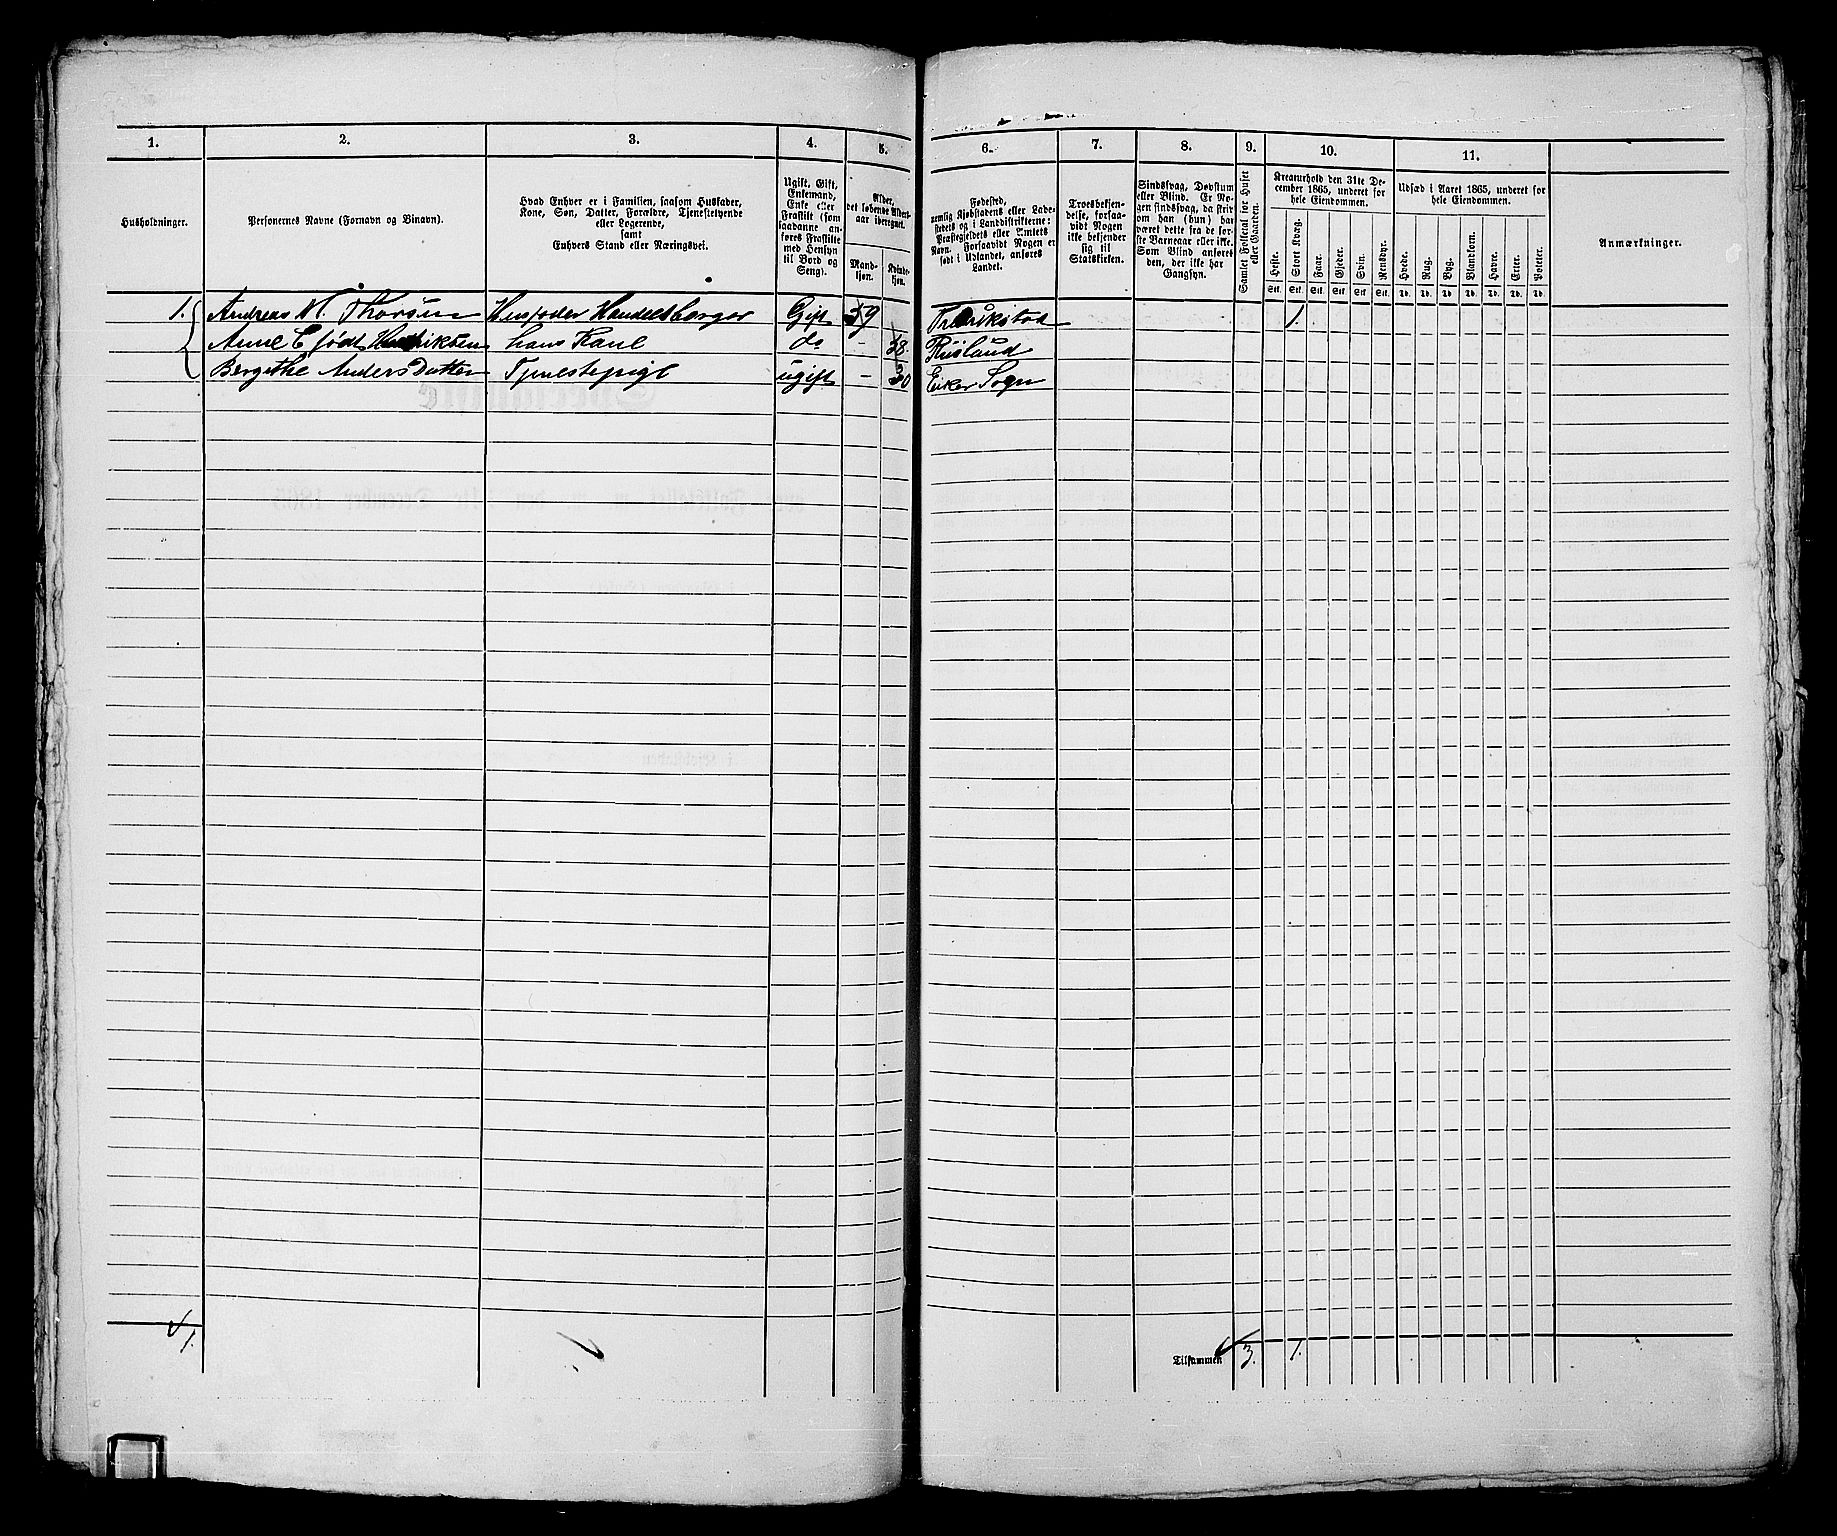 1. 2. 3. 4. 5. 6. 7. 8. 9. 10. 11.
Husholdninger.
Personernes Navne (Fornavn og Binavn).
Hvad Enhver er i Familien, saasom Husfader,
Kone, Søn, Datter, Forældre, Tjenestetyende
eller Logerende,
samt
Enhvers Stand eller Næringsvei.
Ugift, Gift,
Enkemand,
Enke eller
Fraskilt (som
saadanne an-
føres Fraskilte
med Hensyn
til Bord og
Seng).
Alder,
det løbende Alders-
aar iberegnet.
Mand-
kjøn.
Kvinde-
kjøn.
Fødested,
nemlig Kjøbstadens eller Lade-
stedets og i Landdistrikterne:
Præstegjeldets eller Amtets
Navn. Forsaavidt Nogen er
født i Udlandet, anføres
Landet.
Troesbekjen-
delse, forsaa-
vidt Nogen
ikke bekjender
sig til
Statskirken.
Sindssvag, Døvstum
eller Blind. Er No-
gen sindssvag, da skriv
om han (hun) har
været dette fra de før-
ste Barneaar eller ikke.
Som Blind anføres
den, der ikke har
Gangsyn.
Samlet Folketal for Huset
eller Gaarden.
Kreaturhold den 31te De-
cember 1865, underet for
hele Eiendommen.
Heste. Stort Kvæg. Faar. Gjeder. Svin. Rensdyr.
Stk. Stk. Stk. Stk. Stk. Stk.
Udsæd i Aaret 1865, underet for
hele Eiendommen.
Hvede. Rug. Byg. Blandkorn. Havre. Erter. Poteter.
Td. Td. Td. Td. Td. Td. Td.
Anmærkninger.
1. Andreas M. Thorsen Husfader Handelsborger Gift 59 Fredrikstad 1.
Anne C født Hendriksen hans Kone do - 58 Rusland
Bergithe Anders Datter Tjenestepige ugift - 30 Eiker Sogn
1. Tilsammen 3. 1.